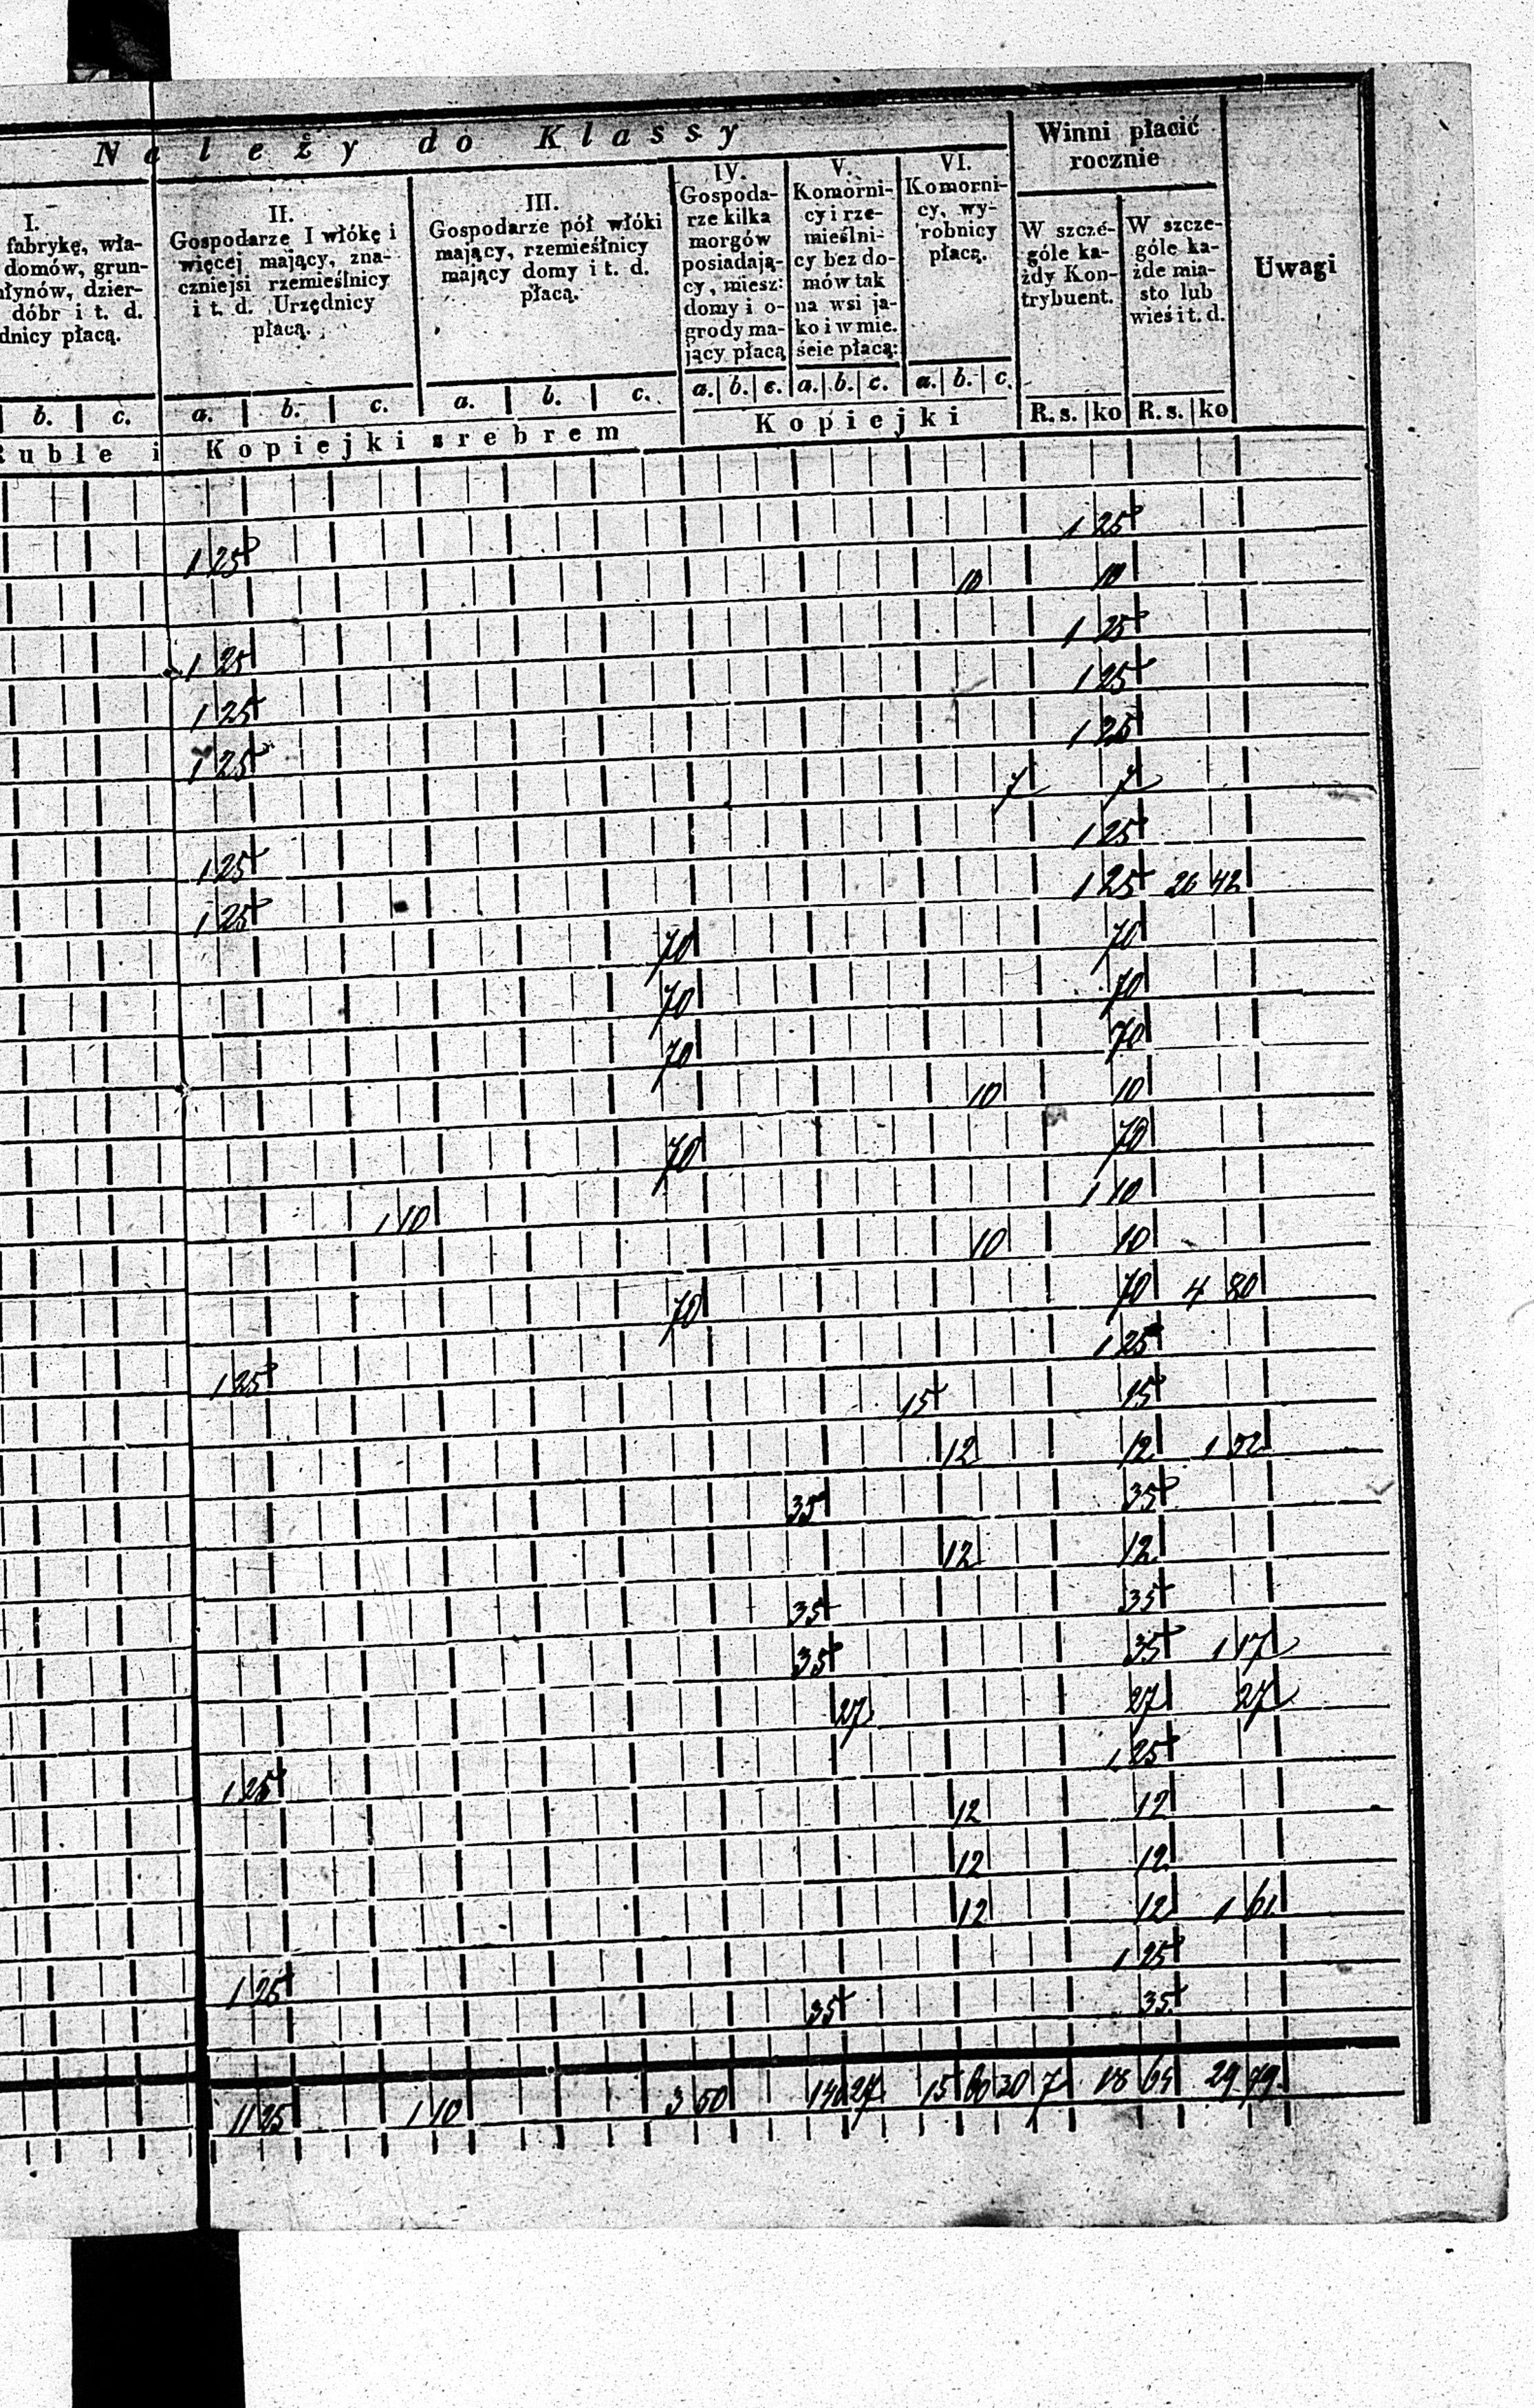 Należy do Klassy
Winni płacić
rocznie
I.
fabrykę, wła-
domów, grun-
młynów, dzier-
dóbr i t. d.
dnicy płacą.
II.
Gospodarze I włókę i
więcej mający, zna-
czniejsi rzemieślnicy
i t. d. Urzędnicy
płacą.
III.
Gospodarze pół włóki
mający, rzemieślnicy
mający domy i t. d.
płacą.
IV.
Gospoda-
rze kilka
morgów
posiadają-
cy, miesz:
domy i o-
grody ma-
jący płacą
V.
Komorni-
cy i rze-
mieślni-
cy bez do-
mów tak
na wsi ja-
ko i w mie.
ście płacą:
VI.
Komorni-
cy, wy-
robnicy
płacą.
W szcze-
góle ka-
żdy Kon-
trybuent.
W szcze-
góle ka-
żde mia-
sto lub
wieś i t. d.
Uwagi
b. c. a. b. c. a. b. c. a. b. c. a. b. c. a. b. c. R. s. ko R. s. ko
Ruble i Kopiejki srebrem Kopiejki
1 25 1 25
10 10
1 25 1 25
1 25 1 25
1 25 1 25
7 7
1 25 1 25
1 25 1 25 26 42
70 70
70 70
70 70
10 10
70 70
1 10 1 10
10 10
70 70 4 80
1 25 1 25
15 15
12 12 1 52
35 35
12 12
35 35
35 35 1 17
27 27 27
1 25 1 25
12 12
12 12
12 12 1 61
1 25 1 25
35 35
11 25 1 10 3 50 140 27 15 60 30 7 18 64 29 79